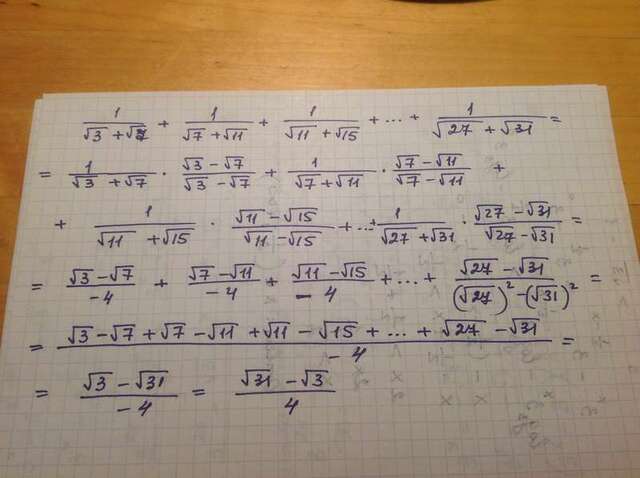 1/(√3 + √7) + 1/(√7 + √11) + 1/(√11 + √15) + ... + 1/(√27 + √31) =
= 1/(√3 + √7) · (√3 − √7)/(√3 − √7) + 1/(√7 + √11) · (√7 − √11)/(√7 − √11) +
+ 1/(√11 + √15) · (√11 − √15)/(√11 − √15) + ... + 1/(√27 + √31) · (√27 − √31)/(√27 − √31) =
= (√3 − √7)/−4 + (√7 − √11)/−4 + (√11 − √15)/−4 + ... + (√27 − √31)/((√27)² − (√31)²) =
= (√3 − √7 + √7 − √11 + √11 − √15 + ... + √27 − √31)/−4 =
= (√3 − √31)/−4 = (√31 − √3)/4